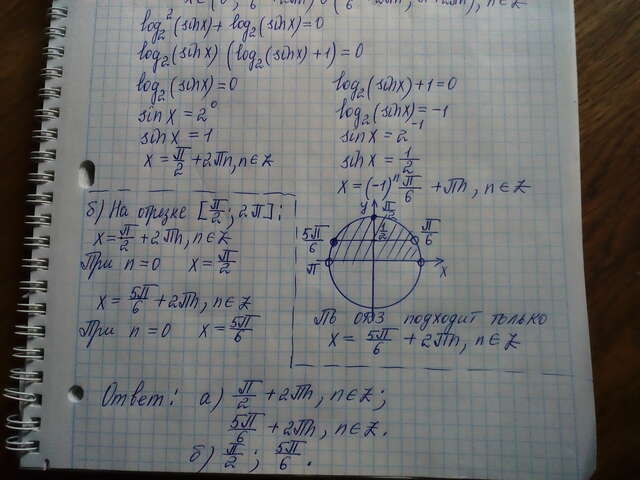 log₂²(sinx) + log₂(sinx) = 0
log₂(sinx) (log₂(sinx) + 1) = 0
log₂(sinx) = 0
sinx = 2⁰
sinx = 1
x = π/2 + 2πn, n∈Z
log₂(sinx) + 1 = 0
log₂(sinx) = -1
sinx = 2⁻¹
sinx = 1/2
x = (-1)ⁿ π/6 + πn, n∈Z
б) На отрезке [π/2; 2π]:
x = π/2 + 2πn, n∈Z
При n = 0 x = π/2
x = 5π/6 + 2πn, n∈Z
При n = 0 x = 5π/6
y π/2
5π/6 1/2 π/6
π x
По ОДЗ подходит только
x = 5π/6 + 2πn, n∈Z
Ответ: а) π/2 + 2πn, n∈Z;
5π/6 + 2πn, n∈Z.
б) π/2; 5π/6.